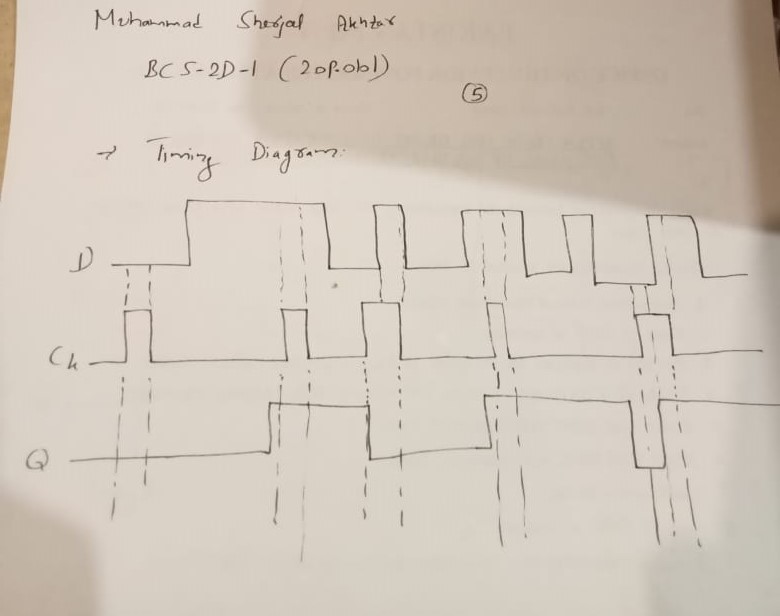 Muhammad Sherjal Akhtar
BCS-2D-1 (20P.0b1)
5
→ Timing Diagram:
D
Ck
Q